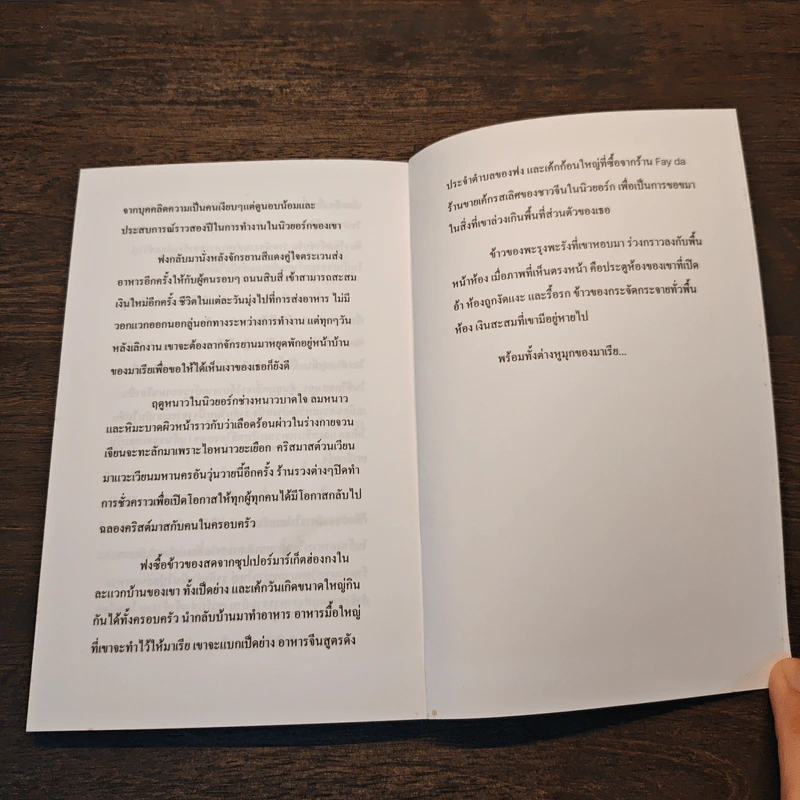 จากบุคคลิตความเป็นคนเงียบๆแต่ดูนอบน้อมและ
ประสบการณ์ราวสองปีในการทำงานในนิวยอร์กของเขา
ฟงกลับมานั่งหลังจักรยานสีแดงคู่ใจตระเวนส่ง
อาหารอีกครั้งให้กับผู้คนรอบๆ ถนนสิบสี่ เข้าสามารถสะสม
เงินใหม่อีกครั้ง ชีวิตในแต่ละวันมุ่งไปที่การส่งอาหาร ไม่มี
วอกแวกออกนอกลู่นอกทางระหว่างการทำงาน แต่ทุกๆวัน
หลังเลิกงาน เขาจะต้องลากจักรยานมาหยุดพักอยู่หน้าบ้าน
ของมาเรียเพื่อขอให้ได้เห็นเงาของเธอก็ยังดี
ฤดูหนาวในนิวยอร์กช่างหนาวบาดใจ ลมหนาว
และหิมะบาดผิวหน้าราวกับว่าเลือดร้อนผ่าวในร่างกายจวน
เจียนจะทะลักมาเพราะไอหนาวยะเยือก คริสมาสต์วนเวียน
มาแวะเวียนมหานครอันวุ่นวายนี้อีกครั้ง ร้านรวงต่างๆปิดทำ
การชั่วคราวเพื่อเปิดโอกาสให้ทุกผู้ทุกคนได้มีโอกาสกลับไป
ฉลองคริสต์มาสกับคนในครอบครัว
ฟงซื้อข้าวของสดจากซุปเปอร์มาร์เก็ตฮ่องกงใน
ละแวกบ้านของเขา ทั้งเป็ดย่าง และเค้กวันเกิดขนาดใหญ่กิน
กันได้ทั้งครอบครัว นำกลับบ้านมาทำอาหาร อาหารมื้อใหญ่
ที่เขาจะทำไว้ให้มาเรีย เขาจะแบกเป็ดย่าง อาหารจีนสูตรดัง
ประจำตำบลของฟง และเค้กก้อนใหญ่ที่ซื้อจากร้าน Fay da
ร้านขายเค้กรสเลิศของชาวจีนในนิวยอร์ก เพื่อเป็นการขอขมา
ในสิ่งที่เขาล่วงเกินพื้นที่ส่วนตัวของเธอ
ข้าวของพะรุงพะรังที่เขาหอบมา ร่วงกราวลงกับพื้น
หน้าห้อง เมื่อภาพที่เห็นตรงหน้า คือประตูห้องของเขาที่เปิด
อ้า ห้องถูกงัดแงะ และรื้อรก ข้าวของกระจัดกระจายทั่วพื้น
ห้อง เงินสะสมที่เขามีอยู่หายไป
พร้อมทั้งต่างหูมุกของมาเรีย...